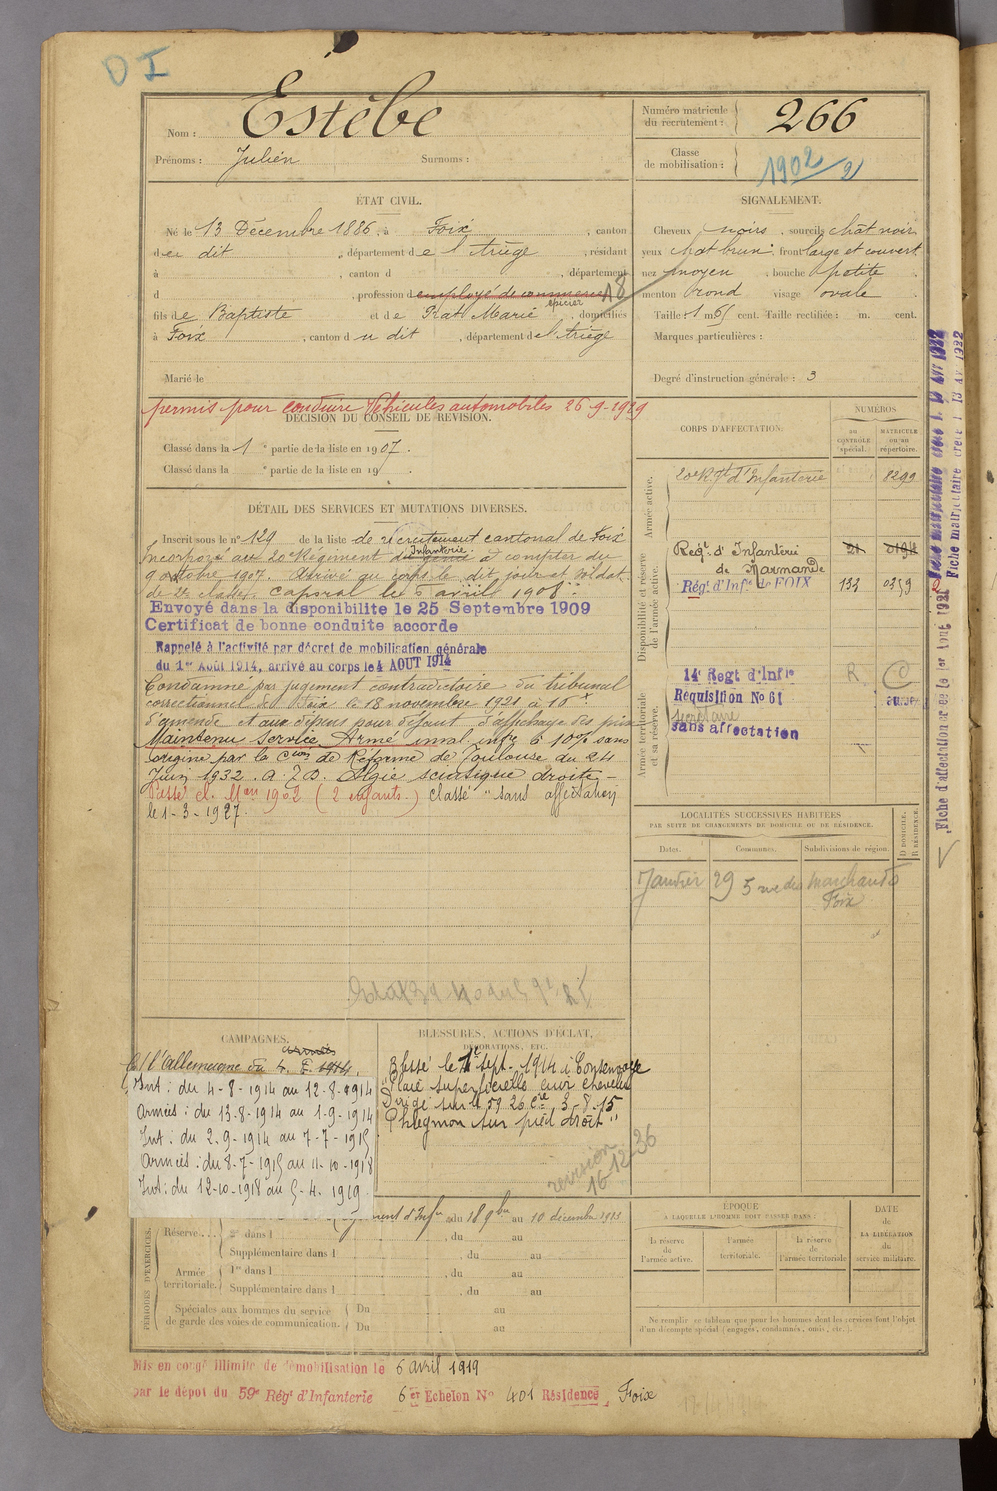 D I
Nom : Estèbe
Prénoms : Julien Surnoms :
Numéro matricule
du recrutement : 266
Classe
de mobilisation : 1902/2
ÉTAT CIVIL.
Né le 13 Décembre 1886, à Foix, canton
d u dit, département de l'Ariège, résidant
à , canton d , département
d , profession d employé de commerce 18
épicier
fils de Baptiste et de Rat Marie, domiciliés
à Foix, canton du dit, département de l'Ariège
Marié le
SIGNALEMENT.
Cheveux noirs, sourcils chât noir
yeux chât brun, front large et couvert
nez moyen, bouche petite
menton rond visage ovale
Taille : 1 m 65 cent. Taille rectifiée : m. cent.
Marques particulières :
Degré d'instruction générale : 3
permis pour conduire Véhicules automobiles 26-9-1929
DÉCISION DU CONSEIL DE RÉVISION.
Classé dans la 1e partie de la liste en 1907.
Classé dans la e partie de la liste en 19 .
DÉTAIL DES SERVICES ET MUTATIONS DIVERSES.
Inscrit sous le n° 129 de la liste de recrutement cantonal de Foix
Infanterie
Incorporé au 20e Régiment du génie à compter du
9 octobre 1907. Arrivé au corps le dit jour et soldat
de 2e classe. Caporal le 6 avril 1908.
Envoyé dans la disponibilite le 25 Septembre 1909
Certificat de bonne conduite accorde
Rappelé à l'activité par décret de mobilisation générale
du 1er Août 1914, arrivé au corps le 4 AOUT 1914
Condamné par jugement contradictoire du tribunal
correctionnel de Foix le 18 novembre 1921 à 16 f
d'amende et aux dépens pour défaut d'affichage des prix
Maintenu Service Armé inval. infre à 10% sans
origine par la Cion de Réforme de Toulouse du 24
Juin 1932. Algie sciatique droite
Passé cl. Mon 1902 (2 enfants.) classé "sans affectation
le 1-3-1927.
CORPS D'AFFECTATION.
NUMÉROS
au
CONTRÔLE
spécial.
MATRICULE
ou au
répertoire.
Armée active.
20e Rgt d'Infanterie 8299
Disponibilité et réserve
de l'armée active.
Regt. d'Infanterie
de Marmande
Régt. d'Infie de FOIX 133 0259
Armée territoriale
et sa réserve.
14e Regt d'Infie R. C
Requisition No 61
Secrétaire
sans affectation
Fiche matriculaire créée le 13 AVR 1922
Fiche d'affectation créée le 1er Aout 1921
LOCALITÉS SUCCESSIVES HABITÉES
PAR SUITE DE CHANGEMENTS DE DOMICILE OU DE RÉSIDENCE.
Dates. Communes. Subdivisions de région.
D DOMICILE.
R RÉSIDENCE.
Janvier 29 5 rue des Marchands
Foix
CAMPAGNES.
C/ l'Allemagne du 4. 8. 1914.
Int : du 4-8-1914 au 12-8-1914
Armées : du 13-8-1914 au 1-9-1914
Int : du 2-9-1914 au 7-7-1915
Armées : du 8-7-1915 au 11-10-1918
Int : du 12-10-1918 au 5-4-1919
BLESSURES, ACTIONS D'ÉCLAT,
DÉCORATIONS, ETC.
Blessé le 1er Sept. 1914 à
Plaie superficielle cuir chevelu
Dirigé sur le 59 26 Cie 3-8-15
Phlegmon sur pied droit
revision
16-12-36
PÉRIODES D'EXERCICES.
Régiment d'Infie du 18 9bre au 10 décembre 1913
Réserve... 2e dans l , du au
Supplémentaire dans l , du au
Armée
territoriale. 1re dans l , du au
Supplémentaire dans l , du au
Spéciales aux hommes du service
de garde des voies de communication. Du au
Du au
ÉPOQUE
A LAQUELLE L'HOMME DOIT PASSER DANS :
la réserve
de
l'armée active.
l'armée
territoriale.
la réserve
de
l'armée territoriale
DATE
de
LA LIBÉRATION
du
service militaire.
Ne remplir ce tableau que pour les hommes dont les services font l'objet
d'un décompte spécial (engagés, condamnés, omis, etc.).
Mis en congé illimité de démobilisation le 6 avril 1919
par le dépôt du 59e Régt d'Infanterie 6e Echelon No 401 Résidence, Foix